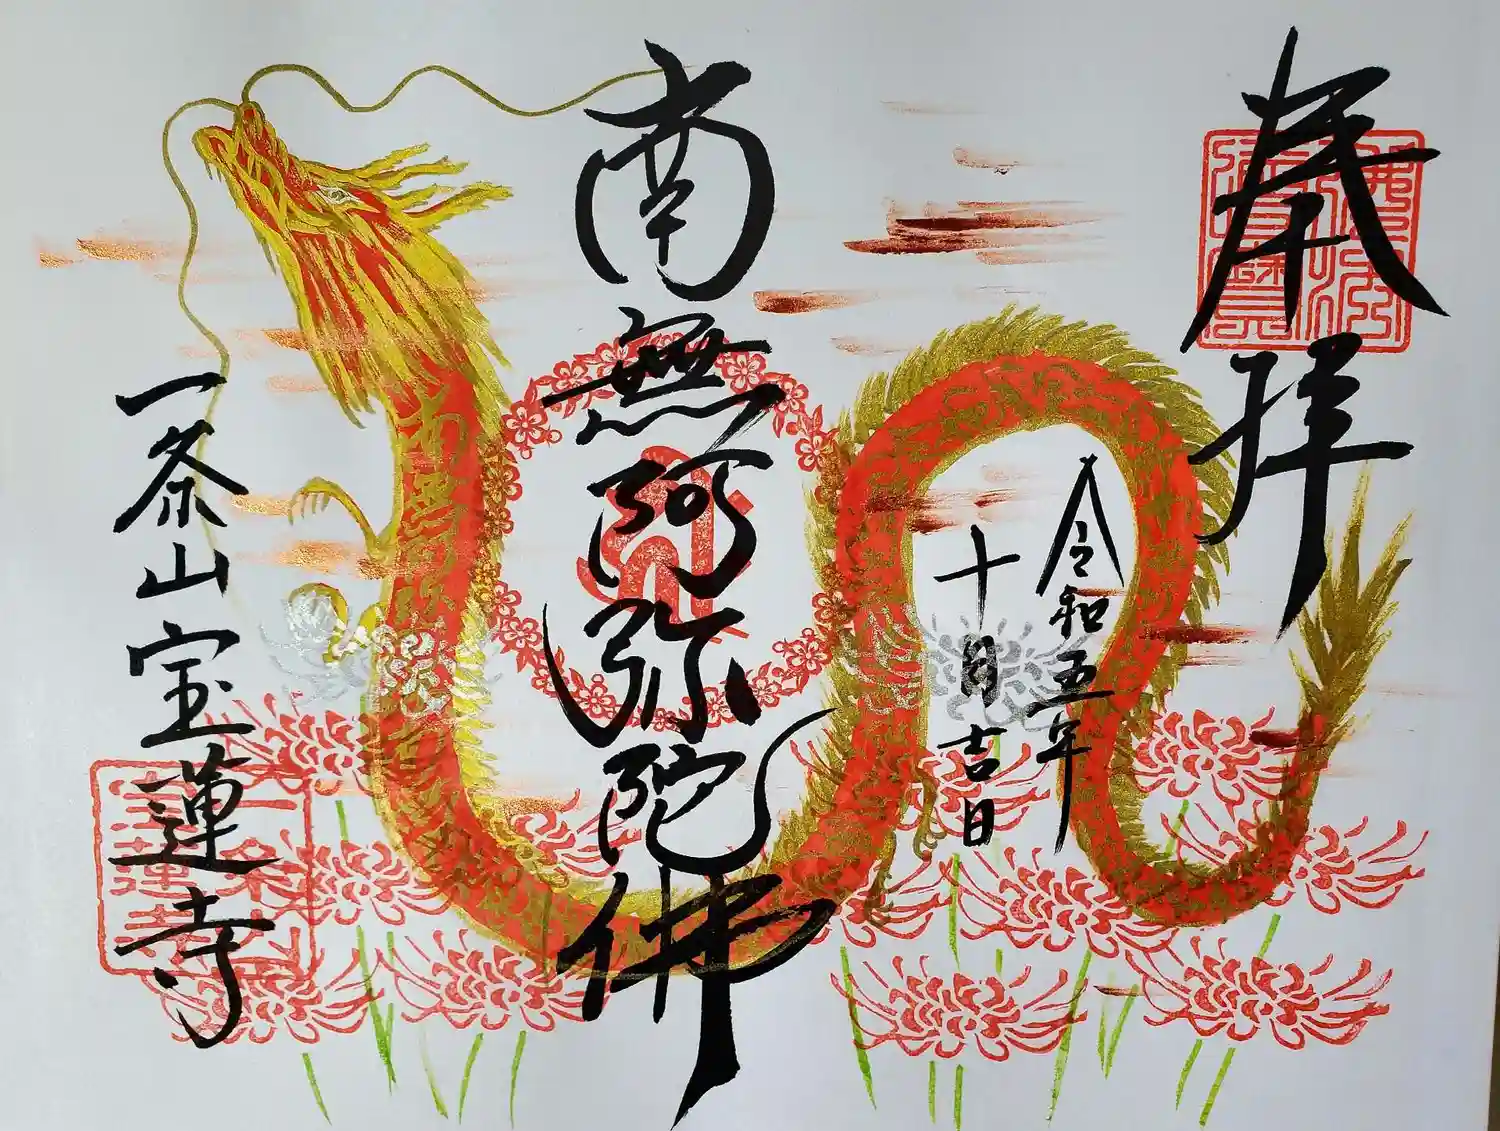 奉拝
令和五年
十月吉日
南無阿弥陀佛
一条山宝蓮寺